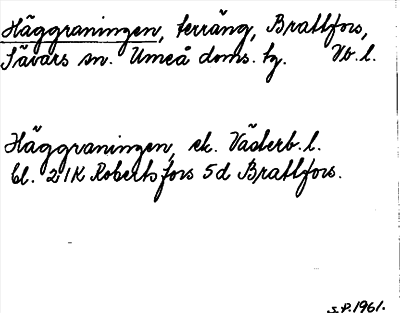 Häggraningen, terräng, Brattfors,
Sävars sn. Umeå doms. tg. Vb. l.
Häggraningen, ek. Västerb. l.
bl. 21K Robertsfors 5d Brattfors.
S.P. 1961.